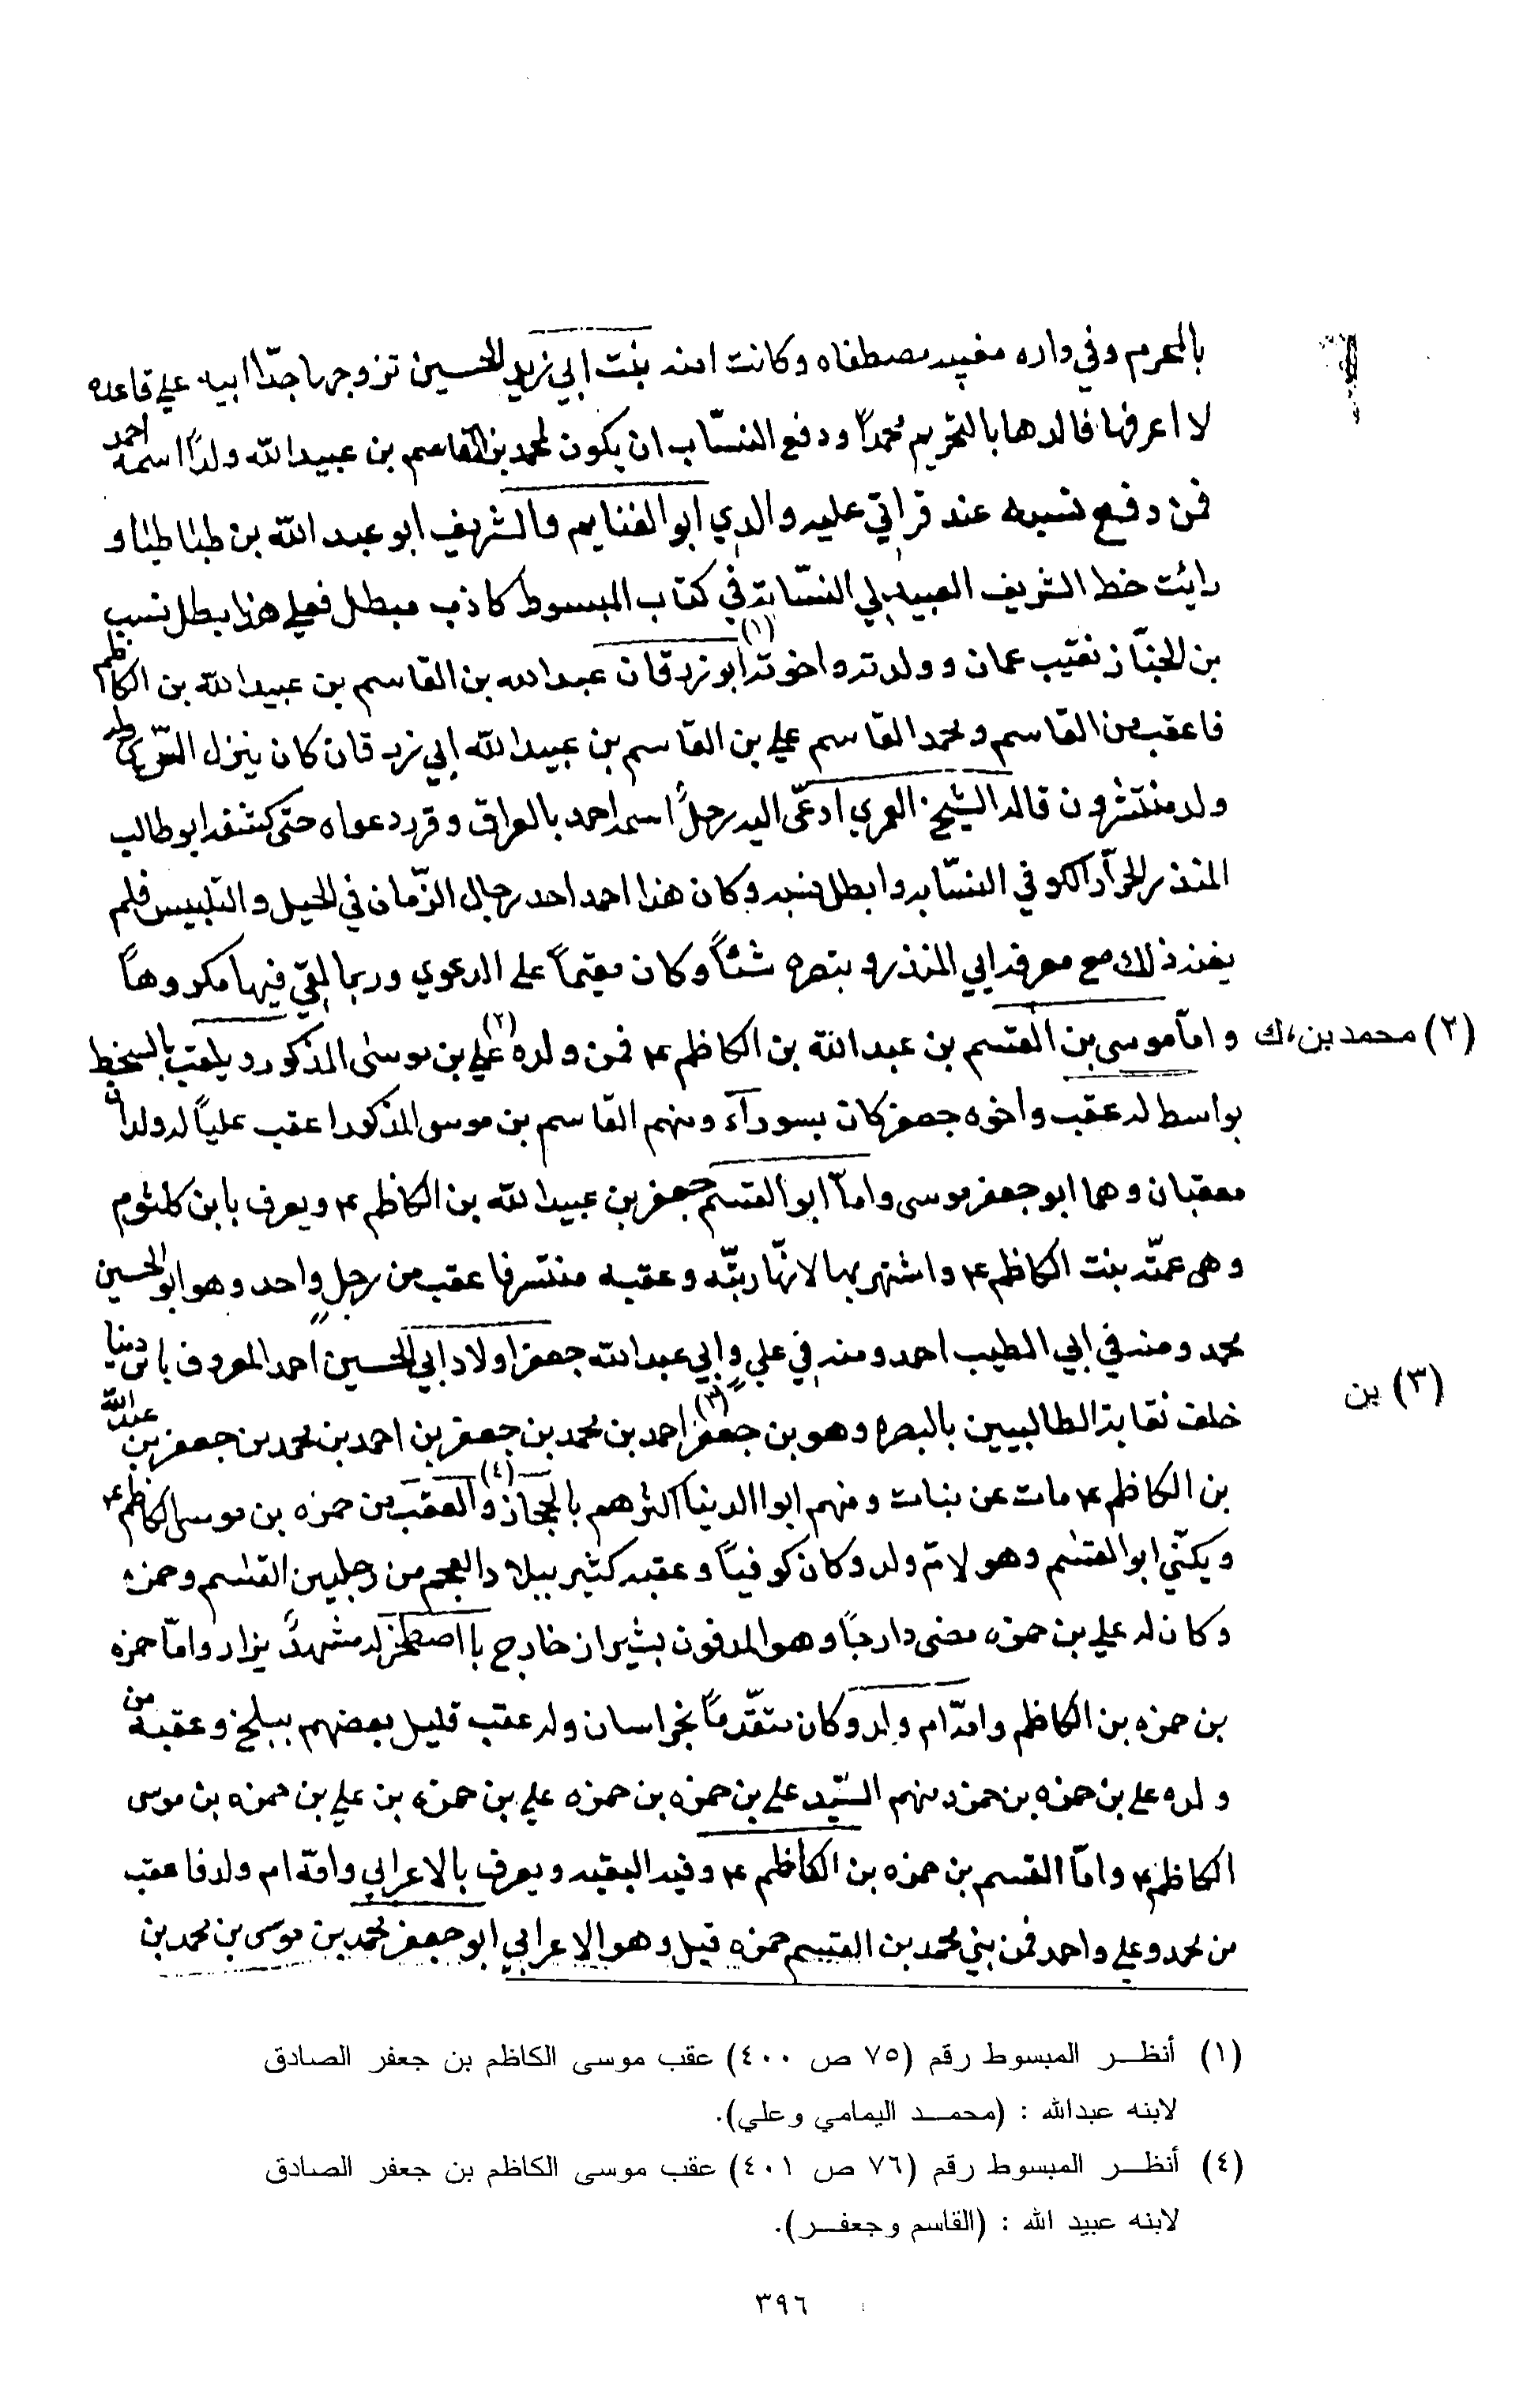 بالمحرم وفي داره مفيد مصطفاه وكانت امه بنت ابي زيد الحسين تزوجها جدّا ابيه علي قاعده
لا اعرفها فالدها بالتحريم محمداً ودفع النسّاب ان يكون لمحمد بن القاسم بن عبيدالله ولداً اسمه احمد
فمن دفع نسبه عند قراتي عليه والدي ابو الغنايم والشريف ابو عبد الله بن طباطبا و
رايت خط الشريف العبيدلي النسّابة في كتاب المبسوط كاذب مبطل فعلي هذا بطل نسب
بن الخبّاز نقيب عمان وولده واخوته (١) ابو زرقان عبدالله بن القاسم بن عبيدالله بن الكاظم
فاعقب من القاسم ومحمد القاسم علي بن القاسم بن عبيدالله ابي زرقان كان ينزل
وله منتشرون قال الشيخ العمري ادعّى اليه رجلٌ اسمه احمد بالعراق وقرر دعواه حتى كشفه ابو طالب
المنذر الخرّاز الكوفي النسّابه وابطل نسبه وكان هذا احمد احد رجال الزّمان في الحيل والتلبيس فلم
يغنه ذلك مع معرفه ابي المنذر و بتصره شئاً وكان مقيماً على الدعوي وربما لقي فيها مكروهاً
واماّ موسى بن القسم بن عبدالله بن الكاظم ع فمن ولده (٢) علي بن موسى المذكور ويلقب بالسخط
(٢) محمد بن، ك
بواسط له عقب واخوه جعفر كان بسوراء ومنهم القاسم بن موسى المذكور اعقب علياً له ولدان
معقبان وهما ابو جعفر موسى واماّ ابو القسم جعفر بن عبيدالله بن الكاظم ع ويعرف بابن كلثوم
وهي عمّته بنت الكاظم ع واشتهر بها لانّها ربتّه وعقبه منتسر فاعقب من رجلٍ واحد وهو ابو الحسين
محمد ومنه في ابي الطيب احمد ومنه في علي وابي عبدالله جعفر اولاد ابي الحسين احمد المعروف بابن دينا
خلف نقابة الطالبيين بالبصره وهو بن جعفر (٣) احمد بن محمد بن جعفر بن احمد بن محمد بن جعفر بن عبدالله
(٣) بن
بن الكاظم ع مات عن بنات ومنهم ابوا الدنيا اكثرهم بالحجاز (٤) والعقب من حمزه بن موسى الكاظم ع
ويكنّي ابو القسم وهو لامّ ولد وكان كوفياً وعقبه كثير ببلاد العجم من رجلين القسم وحمزه
وكان له علي بن حمزه مضى دارجاً وهو المدفون بشيراز خارج باب اصطخر له مشهدٌ يزار واماّ حمزه
بن حمزه بن الكاظم وامّه ام ولد وكان متقدّماً بخراسان وله عقب قليل بعضهم ببلخ وعقبه من
ولده علي بن حمزه بن حمزه منهم السّيد علي بن حمزه بن حمزه علي بن حمزه بن علي بن حمزه بن موسى
الكاظم ع واماّ القسم بن حمزه بن الكاظم ع وفيه البقيه ويعرف بالاعرابي وامّه ام ولد فاعقب
من محمد وعلي واحمد فمن بني محمد بن القسم حمزه قيل وهو الاعرابي ابو جعفر محمد بن موسى بن محمد بن
(١) أنظـــر المبسوط رقم (٧٥ ص ٤٠٠) عقب موسى الكاظم بن جعفر الصادق
لابنه عبدالله : (محمـــد اليمامي وعلي).
(٤) أنظـــر المبسوط رقم (٧٦ ص ٤٠١) عقب موسى الكاظم بن جعفر الصادق
لابنه عبيد الله : (القاسم وجعفـــر).
٣٩٦